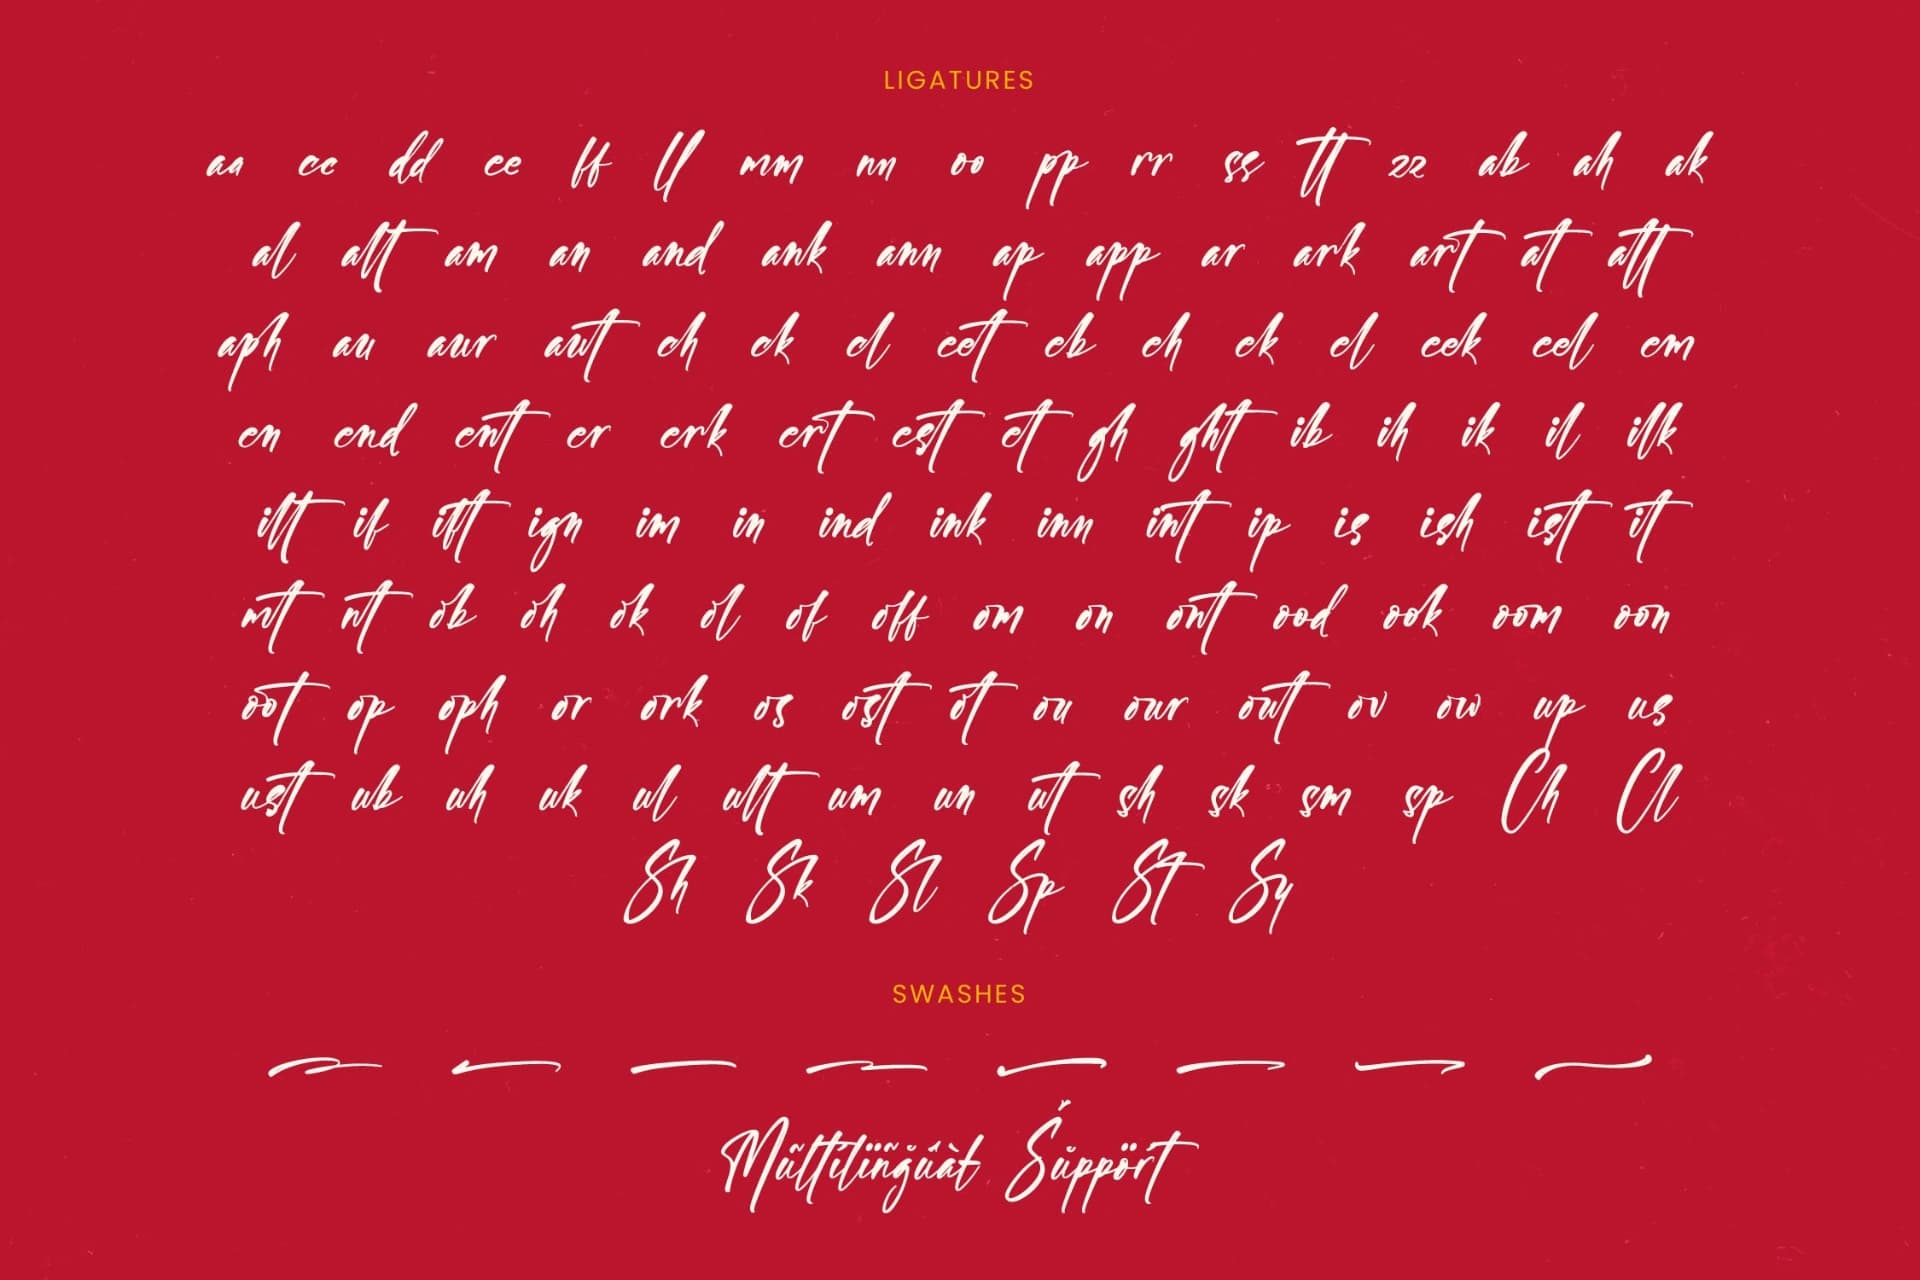 LIGATURES
aa cc dd ee ff ll mm nn oo pp rr ss tt zz ab ah ak
al alt am an and ank ann ap app ar ark art at att
aph au aur aut ch ck cl eet eb eh ek el eek eel em
en end ent er erk ert est et gh ght ib ih ik il ilk
ilt if ift ign im in ind ink inn int ip is ish ist it
mt nt ob oh ok ol of off om on ont ood ook oom oon
oot op oph or ork os ost ot ou our out ov ow up us
ust ub uh uk ul ult um un ut sh sk sm sp Ch Cl
Sh Sk Sl Sp St Sy
SWASHES